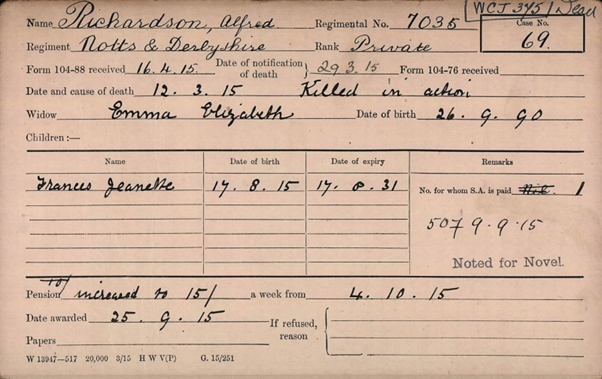 WCJ 345/Dead
Name Richardson, Alfred Regimental No. 7035 Case No.
Regiment Notts & Derbyshire Rank Private 69.
Form 104-88 received 16.4.15. Date of notification of death } 29 3.15 Form 104-76 received
Date and cause of death 12. 3. 15 Killed in action
Widow Emma Elizabeth Date of birth 26. 9. 90
Children:—
Name Date of birth Date of expiry Remarks
Frances Jeanette 17. 8. 15 17. 8. 31 No. for whom S.A. is paid Nil 1
507 9.9.15
Noted for Novel.
10/
Pension increased to 15/ a week from 4. 10. 15
Date awarded 25. 9. 15 If refused, reason
Papers
W 13947—517 20,000 3/15 H W V(P) G. 15/251